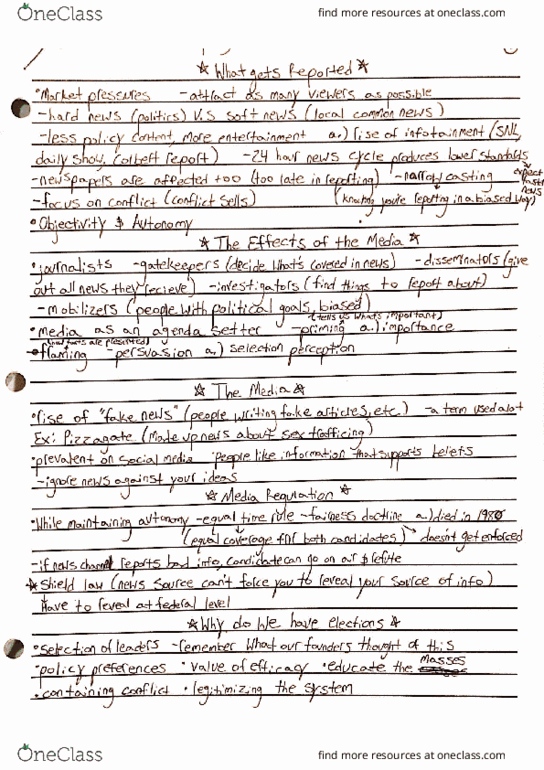 OneClass
find more resources at oneclass.com
☆ What gets Reported ☆
•Market pressures -attract as many viewers as possible
-hard news (politics) V.S soft news (local common news)
-less policy content, more entertainment a.) rise of infotainment (SNL,
daily show, Colbert report) -24 hour news cycle produces lower standards
-newspapers are affected too (too late in reporting) -narrow casting expect fast news
-focus on conflict (conflict sells) (knowing you're reporting in a biased way)
•Objectivity & Autonomy
☆ The Effects of the Media ☆
•journalists -gatekeepers (decide what's covered in news) -disseminators (give
out all news they recieve) -investigators (find things to report about)
-mobilizers (people with political goals, biased)
(tells us what's important)
•media as an agenda setter -priming a.) importance
(how facts are presented)
•framing -persuasion a.) selection perception
☆ The Media ☆
•rise of "fake news" (people writing fake articles, etc.) -a term used alot
Ex: Pizzagate (made up news about sex trafficing)
•prevalent on social media •People like information that supports beliefs
-ignore news against your ideas
☆ Media Regulation ☆
•While maintaining autonomy -equal time rule -fairness doctrine a.) died in 1980
(equal coverage for both candidates) doesn't get enforced
-if news channel reports bad info, candidate can go on air & refute
☆ Shield law (news source can't force you to reveal your source of info)
Have to reveal at federal level
☆ Why do We have elections ☆
•selection of leaders -remember what our founders thought of this
•policy preferences •value of efficacy •educate the masses
•containing conflict •legitimizing the system
OneClass
find more resources at oneclass.com